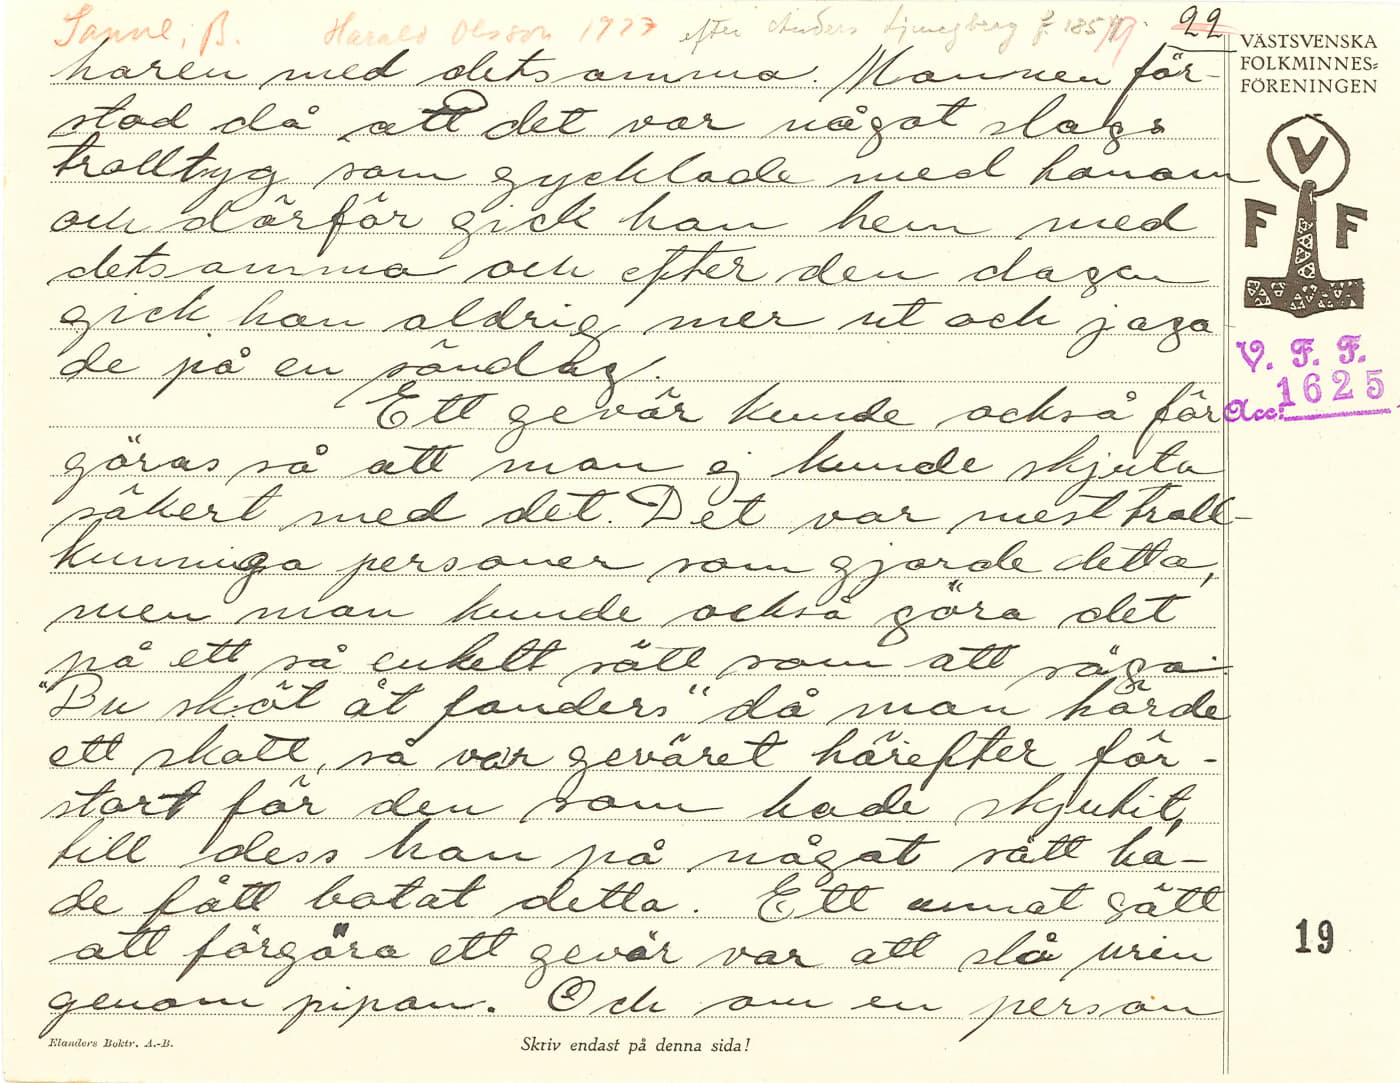 Sanne, B. Harald Olsson 1927 efter Anders Ljungberg f. 1857 22
haren med detsamma. Mannen för-
stod då att det var något slags
trolltyg som gycklade med honom
och därför gick han hem med
detsamma och efter den dagen
gick han aldrig mer ut och jaga-
de på en söndag.
Ett gevär kunde också för
göras så att man ej kunde skjuta
säkert med det. Det var mest troll-
kunniga personer som gjorde detta,
men man kunde också göra det
på ett så enkelt sätt som att säga:
"Bu sköt åt fanders" då man hörde
ett skott, så var geväret härefter för-
stört för den som hade skjutit,
till dess han på något sätt ha-
de fått botat detta. Ett annat sätt
att förgöra ett gevär var att slå urin
genom pipan. Och om en person
VÄSTSVENSKA
FOLKMINNES=
FÖRENINGEN
V
F F
V. F. F.
Acc: 1625
19
Elanders Boktr. A.-B.
Skriv endast på denna sida!